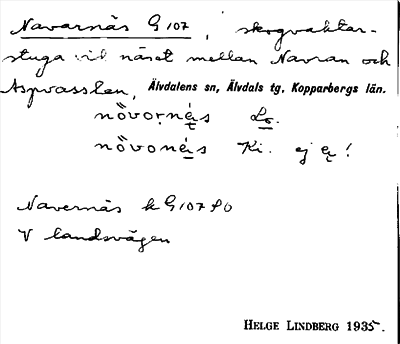 Navarnäs G 107, skogvaktar-
stuga vid näset mellan Navran och
Aspvasslan, Älvdalens sn, Älvdals tg, Kopparbergs län.
nǒvoṛnę́s Lo.
nǒvonę́s Ki. ej ę!
Navernäs k G 107 SO
V landsvägen
HELGE LINDBERG 1935.